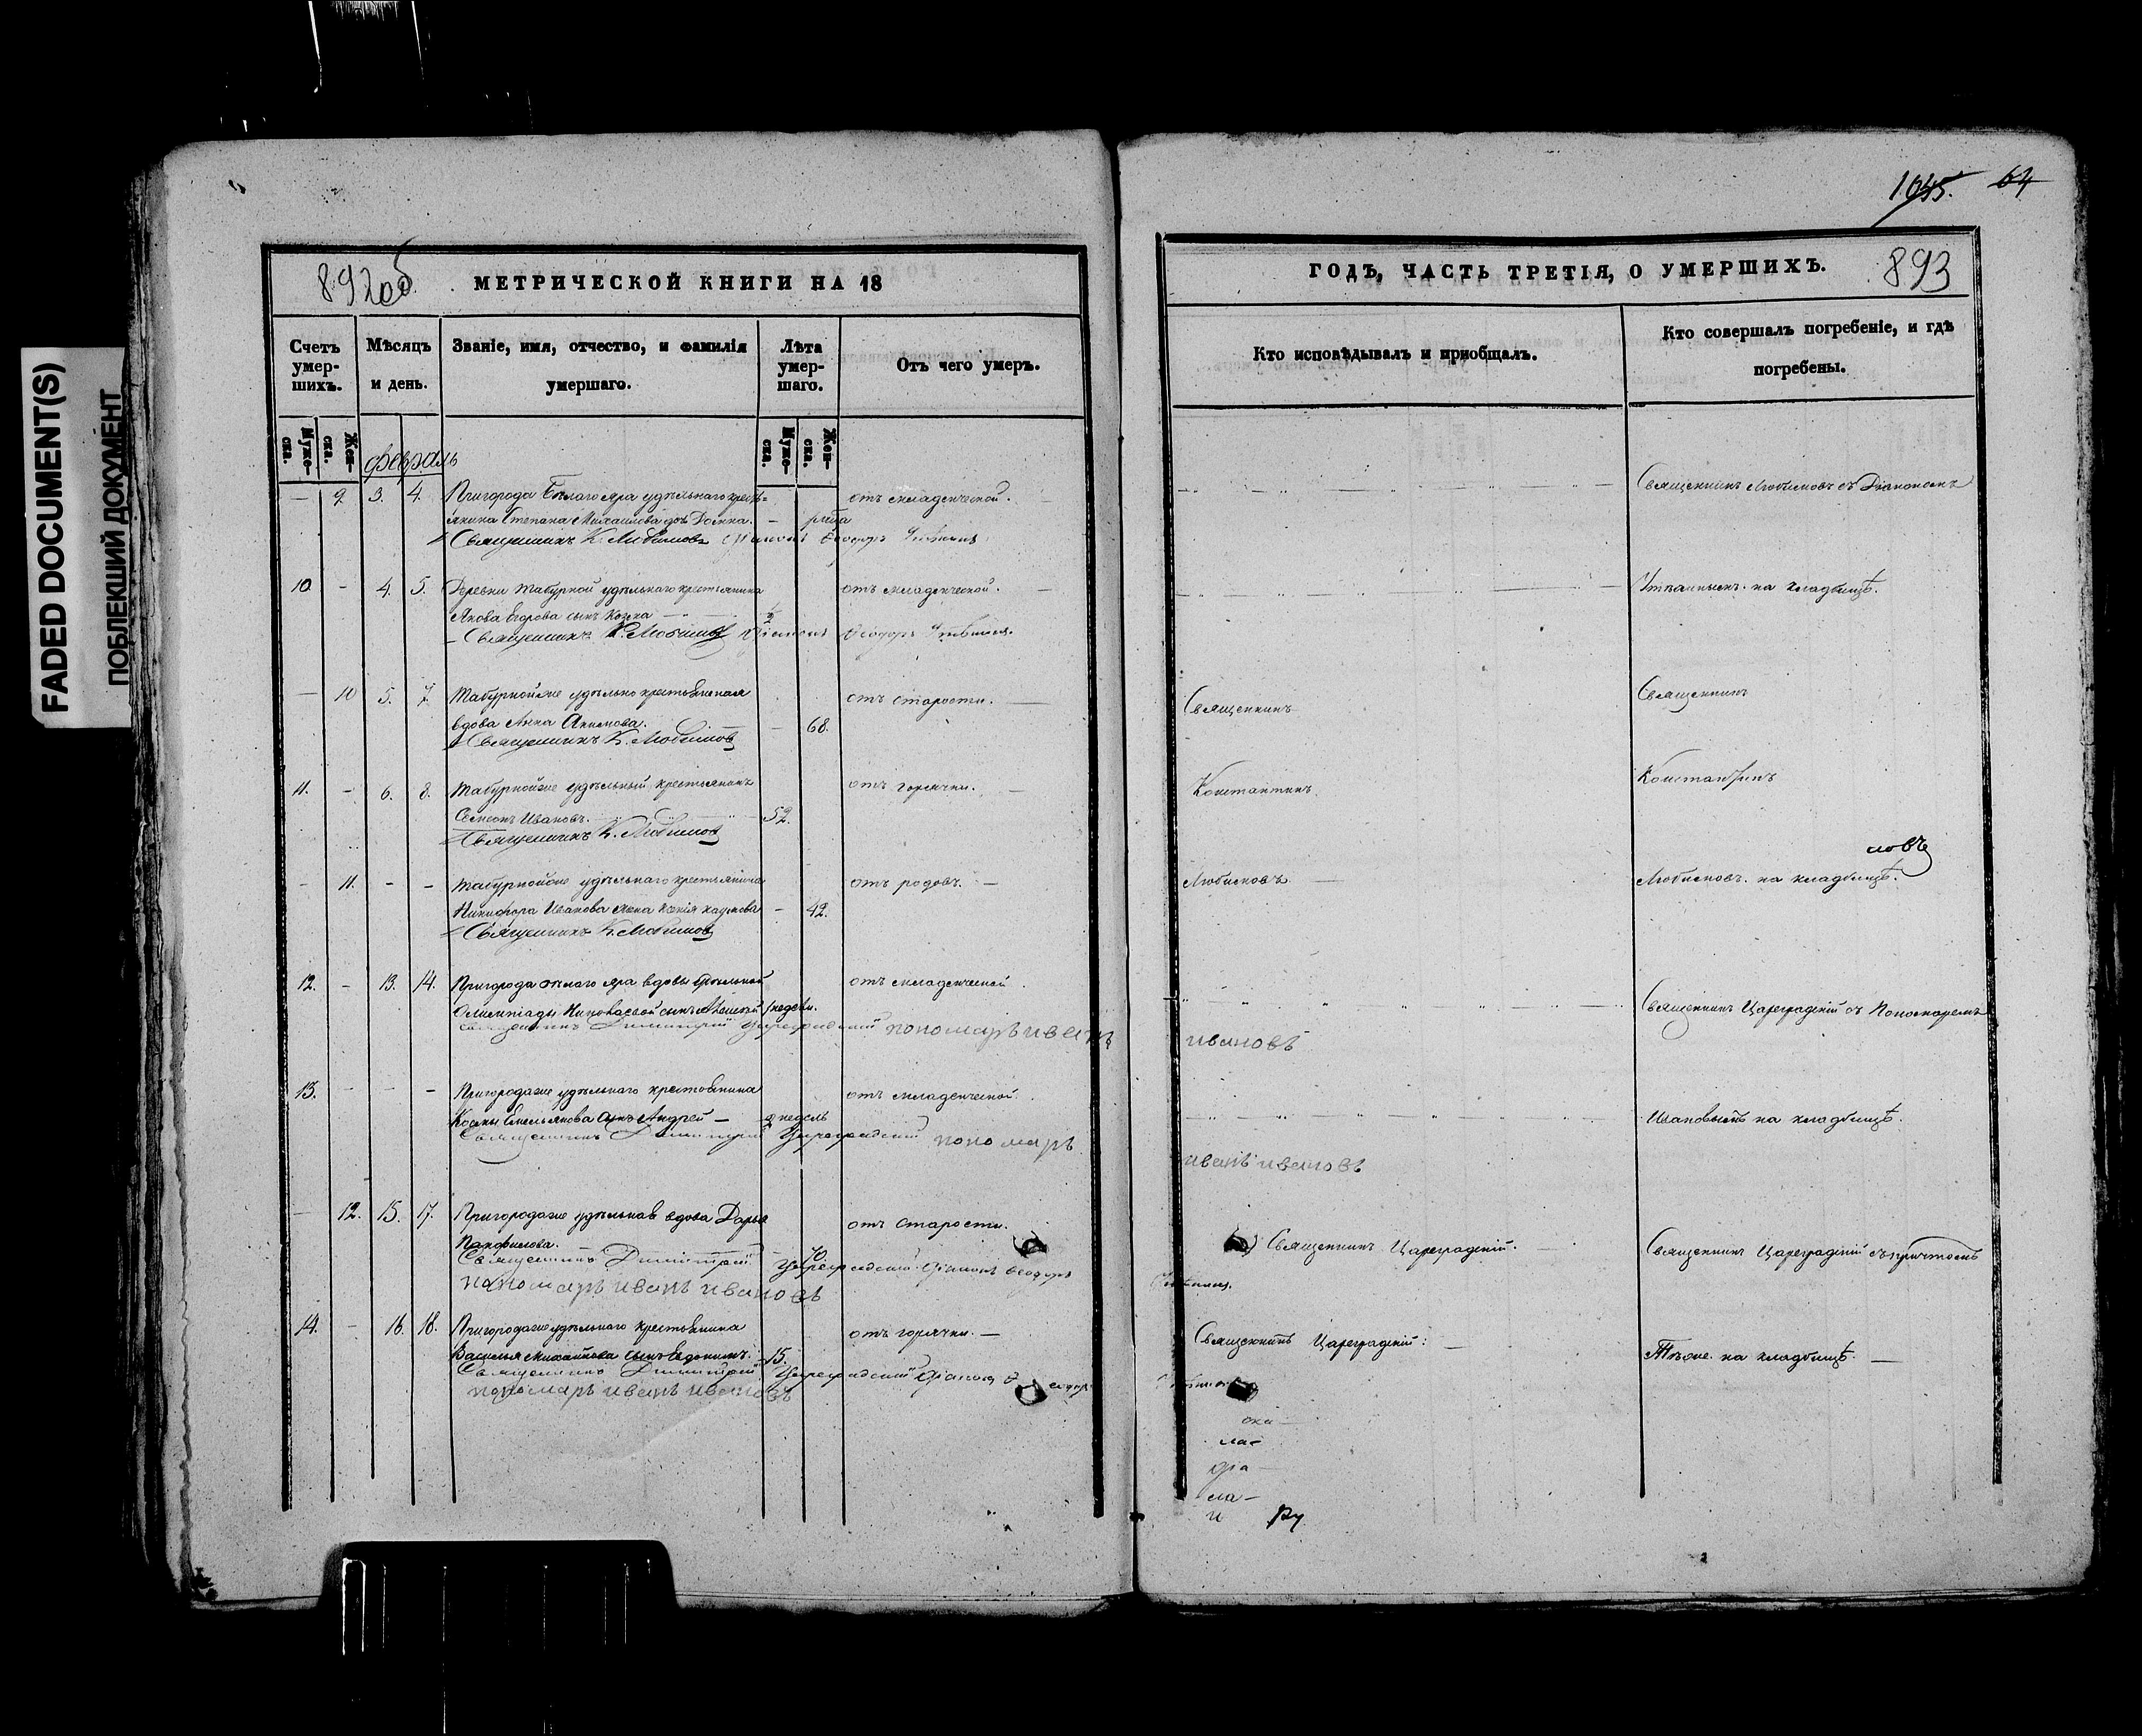 FADED DOCUMENT(S)
ПОБЛЕКШИЙ ДОКУМЕНТ
892об
МЕТРИЧЕСКОЙ КНИГИ НА 18
Счетъ умер-шихъ.
Мѣсяцъ и день.
Званіе, имя, отчество, и фамилія умершаго.
Лѣта умер-шаго.
Отъ чего умеръ.
Муже-ска.
Жен-ска.
Муже-ска.
Жен-ска.
февраль
— 9. 3. 4. Пригорода Бѣлаго яра удѣльнаго кресть=
отъ младенческой.
янина Степана Михаилова дочь Домна. —
Священникъ К. Любимовъ Діаконъ Ѳеодоръ
10 - 4. 5. Деревни Табурной удѣльнаго крестьянина
отъ младенческой.
Якова Егорова сынъ Козма
Священникъ К. Любимовъ Діаконъ Ѳеодоръ
— 10 5. 7. Табурнойже удѣльно крестьянская
отъ старости.
вдова Анна Акимова. — 68.
Священникъ К. Любимовъ
11. - 6. 8. Табурнойже удѣльный крестьянинъ
отъ горячки.
Симеонъ Ивановъ. 52.
Священникъ К. Любимовъ
- 11. - - Табурнойже удѣльнаго крестьянина
отъ родовъ. —
Никифора Иванова жена Ксенія Наумова — 42.
Священникъ К. Любимовъ
12. - 13. 14. Пригорода бѣлаго яра вдовы удѣльной
отъ младенческой
Олимпіады сынъ Алексей недели.
Священникъ Димитрій Цареградскій пономарь иванъ
13. - - - Пригородаже удѣльнаго крестьянина
отъ младенческой.
Козмы Емельянова сынъ Андрей — 2 недель
Священникъ Димитрій Цареградскій пономарь
12. 15. 17. Пригородаже удѣльная вдова Дарья
отъ старости.
Панфилова. 70
Священникъ Димитрій Цареградскій Діаконъ Ѳеодоръ
пономарь иванъ ивановъ
14. - 16. 18. Пригородаже удѣльнаго крестьянина
отъ горячки. —
Василья Михайлова сынъ Евдокимъ. 15.
Священникъ Димитрій Цареградскій Діаконъ
пономарь иванъ ивановъ
1045. 64
ГОДЪ, ЧАСТЬ ТРЕТІЯ, О УМЕРШИХЪ.
893
Кто исповѣдывалъ и пріобщалъ.
Кто совершалъ погребеніе, и гдѣ погребены.
Священникъ Любимовъ съ Діакономъ
на кладбищѣ.
Священникъ
Священникъ
Константинъ
Константинъ
ловъ
Любимовъ —
Любимовъ. на кладбищѣ.
Священникъ Цареградскій съ Пономаремъ
ивановъ
Ивановымъ на кладбищѣ.
иванъ ивановъ
Священникъ Цареградскій.
Священникъ Цареградскій съ причтомъ
Священникъ Цареградскій:
Тѣже. на кладбищѣ. —
ла-
діа —
ла —
и